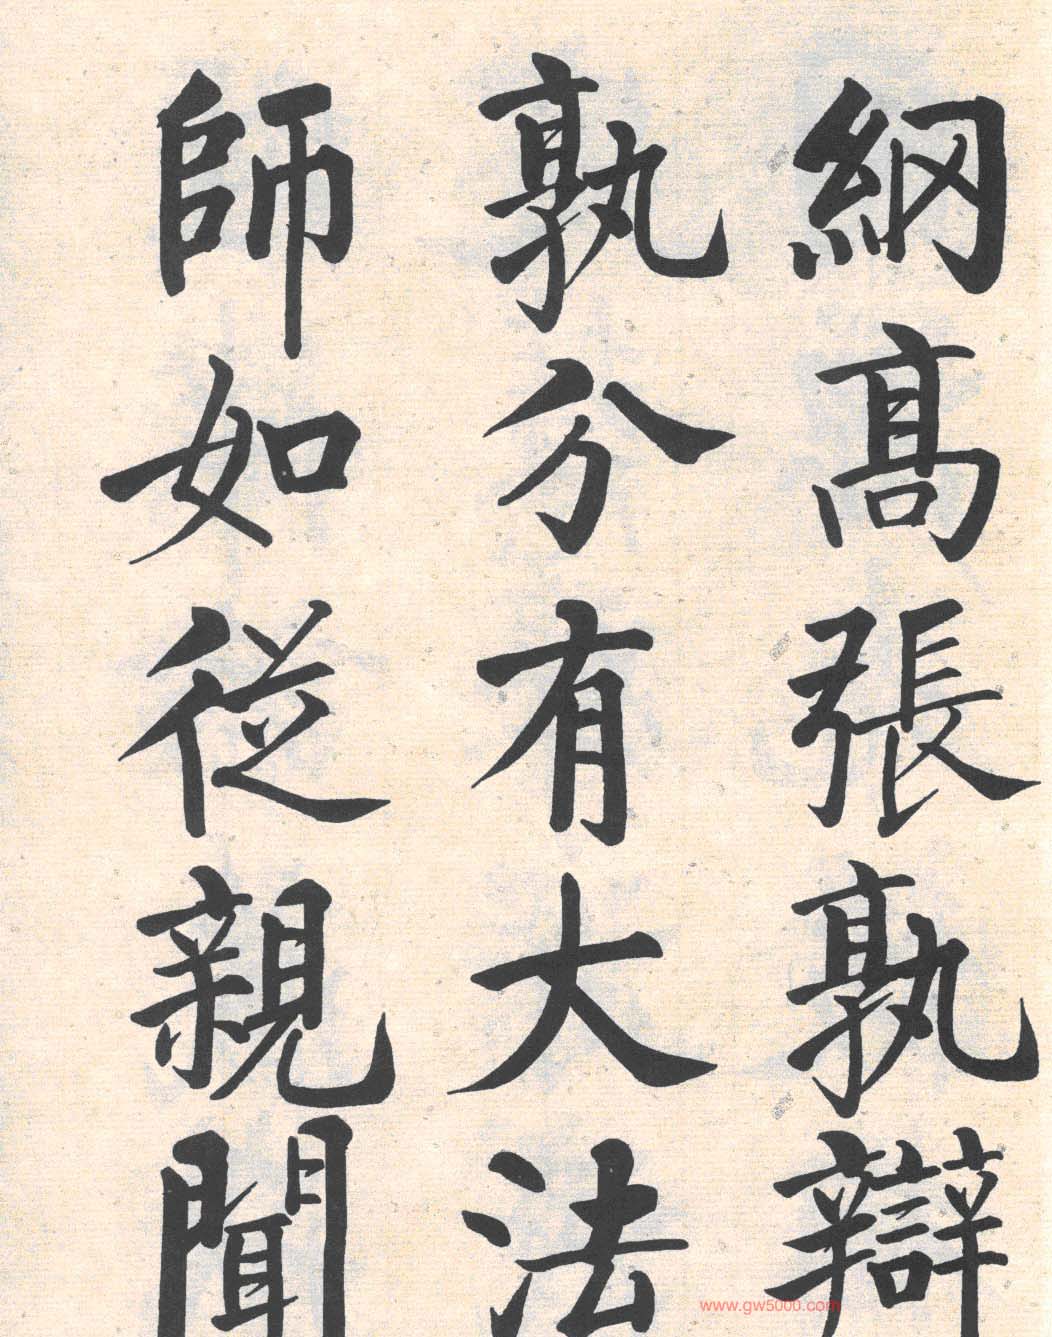 綱高張孰辯
孰分有大法
師如従親聞
www.gw5000.com